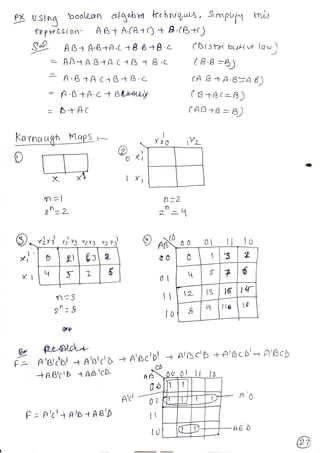 Ex Using boolean algebra techniques, Simplify this
expression: AB + A·(B+C) + B·(B+C)
Sol AB + A·B + A·C + B·B + B·C (Distributive law)
= AB + A·B + A C + B + B·C (B·B = B)
= A·B + A C + B + B·C (A B + A·B = A B)
= A·B + A·C + B (B + BC = B)
= B + AC (AB + B = B)
Karnaugh Maps :-
① x' x
n=1
2ⁿ = 2
② 0 1 x₂
0 x₁'
1 x₁
n=2
2ⁿ = 4
③ x₂'x₃' x₂'x₃ x₂x₃ x₂x₃'
x₁' 0 1 3 2
x₁ 4 5 7 6
n=3
2ⁿ = 8
④ AB CD 00 01 11 10
00 0 1 3 2
01 4 5 7 6
11 12 13 15 14
10 8 9 11 10
F = A'B'C'D' + A'B'C'D + A'BC'D' + A'BC'D + A'BCD' + A'BCD
+ AB'C'D + AB'CD
CD
AB 00 01 11 10
00 1 1
A'C' 01 1 1 1 1 A'B
11
10 1 1 AB'D
F = A'C' + A'B + AB'D
27